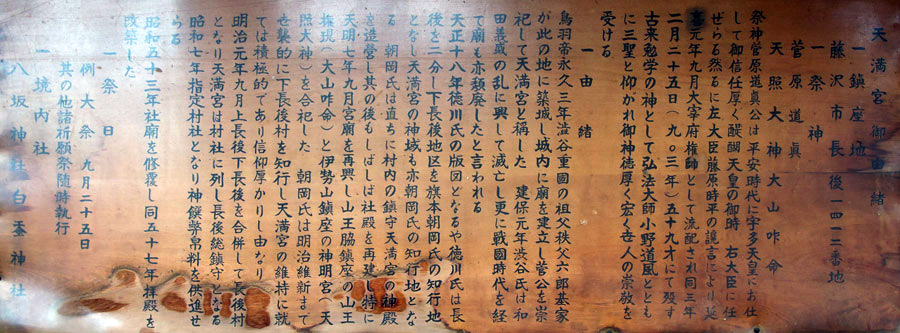 天満宮御由緒
一鎮座地
藤沢市長後一四一二番地
一祭神
天照大神 大山咋命
菅原道眞
祭神菅原道眞公は平安時代に宇多天皇にお仕
して御信任厚く醍醐天皇の御時 右大臣に任
ぜらる然るに左大臣藤原時平の讒言により延
喜元年九月大宰府権帥として流配され同三年
二月二十五日(九〇三年)五十九才にて歿す
古来勉学の神として弘法大師小野道風ととも
に三聖と仰がれ御神徳厚く宏く世人の崇敬を
受ける
一由緒
鳥羽帝永久三年澁谷重國の祖父秩父六郎基家
が此の地に築城し城内に廟を建立し菅公を崇
祀して天満宮と稱した 建保元年渋谷氏は和
田義盛の乱に興して滅亡し更に戦國時代を経
て廟も亦頽廃したと言われる
天正十八年徳川氏の版図となるや徳川氏は長
後を二分し下長後地区を旗本朝岡氏の知行地
となし天満宮の神域も亦朝岡氏の知行地とな
る 朝岡氏は直ちに村内の鎮守天満宮の神殿
を造営し其の後もしばしば社殿を再建し特に
天明七年九月宮廟を再興し山王脇鎮座の山王
権現(大山咋命)と伊勢山鎮座の神明宮(天
照大神)を合祀した 朝岡氏は明治維新まで
世襲的に下長後村を知行し天満宮の維持に就
ては積極的であり信仰厚かりし由なり
明治元年九月上長後下長後を合併して長後村
となり天満宮は村社に列し長後総鎮守となる
昭和七年指定村社となり神饌幣帛料を供進せ
らる
昭和五十三年社廟を修覆し同五十七年拝殿を
改築した
一祭日
例大祭 九月二十五日
其の他諸祈願祭随時執行
一境内社
八坂神社 白
神社